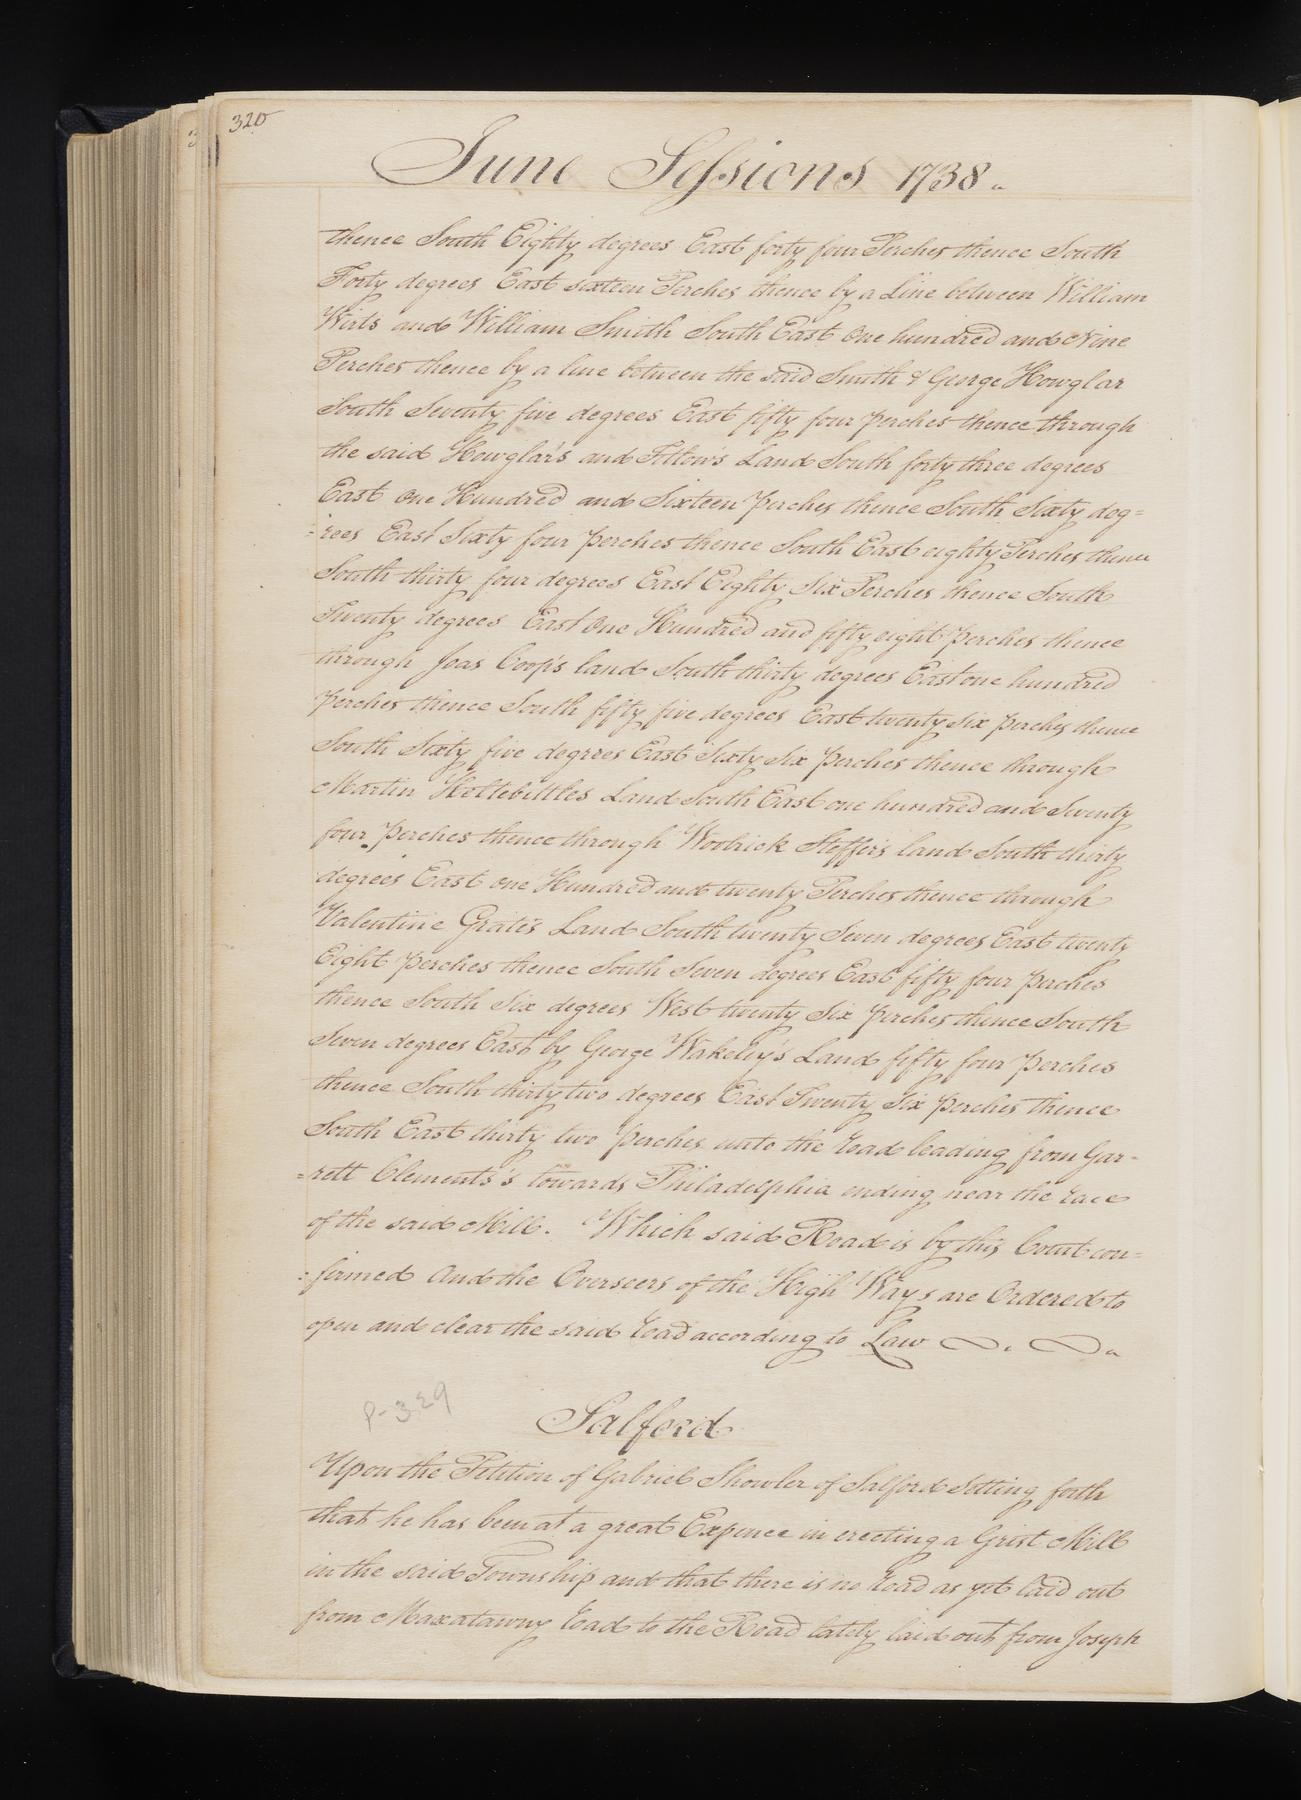 320
June Sessions 1738
thence South Eighty degrees East forty four Perches thence South
Forty degrees East sixteen Perches thence by a Line between William
Wirts and William Smith South East One hundred and Nine
Perches thence by a line between the said Smith & George Howglar
South Seventy five degrees East fifty four perches thence through
the said Howglar's and Land South forty three degrees
East One Hundred and Sixteen perches thence South Sixty deg=
=rees East Sixty four perches thence South East eighty Perches thence
South thirty four degrees East Eighty Six Perches thence South
Twenty degrees East One Hundred and fifty eight perches thence
through Joas Coop's land South thirty degrees East one hundred
perches thence South fifty five degrees East twenty six perches thence
South Sixty five degrees East Sixty Six perches thence through
Martin Land South East one hundred and Seventy
four perches thence through Woolrick Steffers land South thirty
degrees East one Hundred and twenty Perches thence through
Valentine Grate's Land South twenty Seven degrees East twenty
Eight perches thence South Seven degrees East fifty four perches
thence South Six degrees West twenty Six perches thence South
Seven degrees East by George Wakeley's Land fifty four perches
thence South thirty two degrees East Twenty Six perches thence
South East thirty two perches unto the road leading from Gar-
=rett Clements's towards Philadelphia ending near the race
of the said Mill. Which said Road is by this Court con=
=firmed And the Overseers of the High Ways are Ordered to
open and clear the said road according to Law
p-329
Salford
Upon the Petition of Gabriel Showler of Salford Setting forth
that he has been at a great Expence in erecting a Grist Mill
in the said Township and that there is no road as yet laid out
from Maxatawny road to the Road lately laid out from Joseph